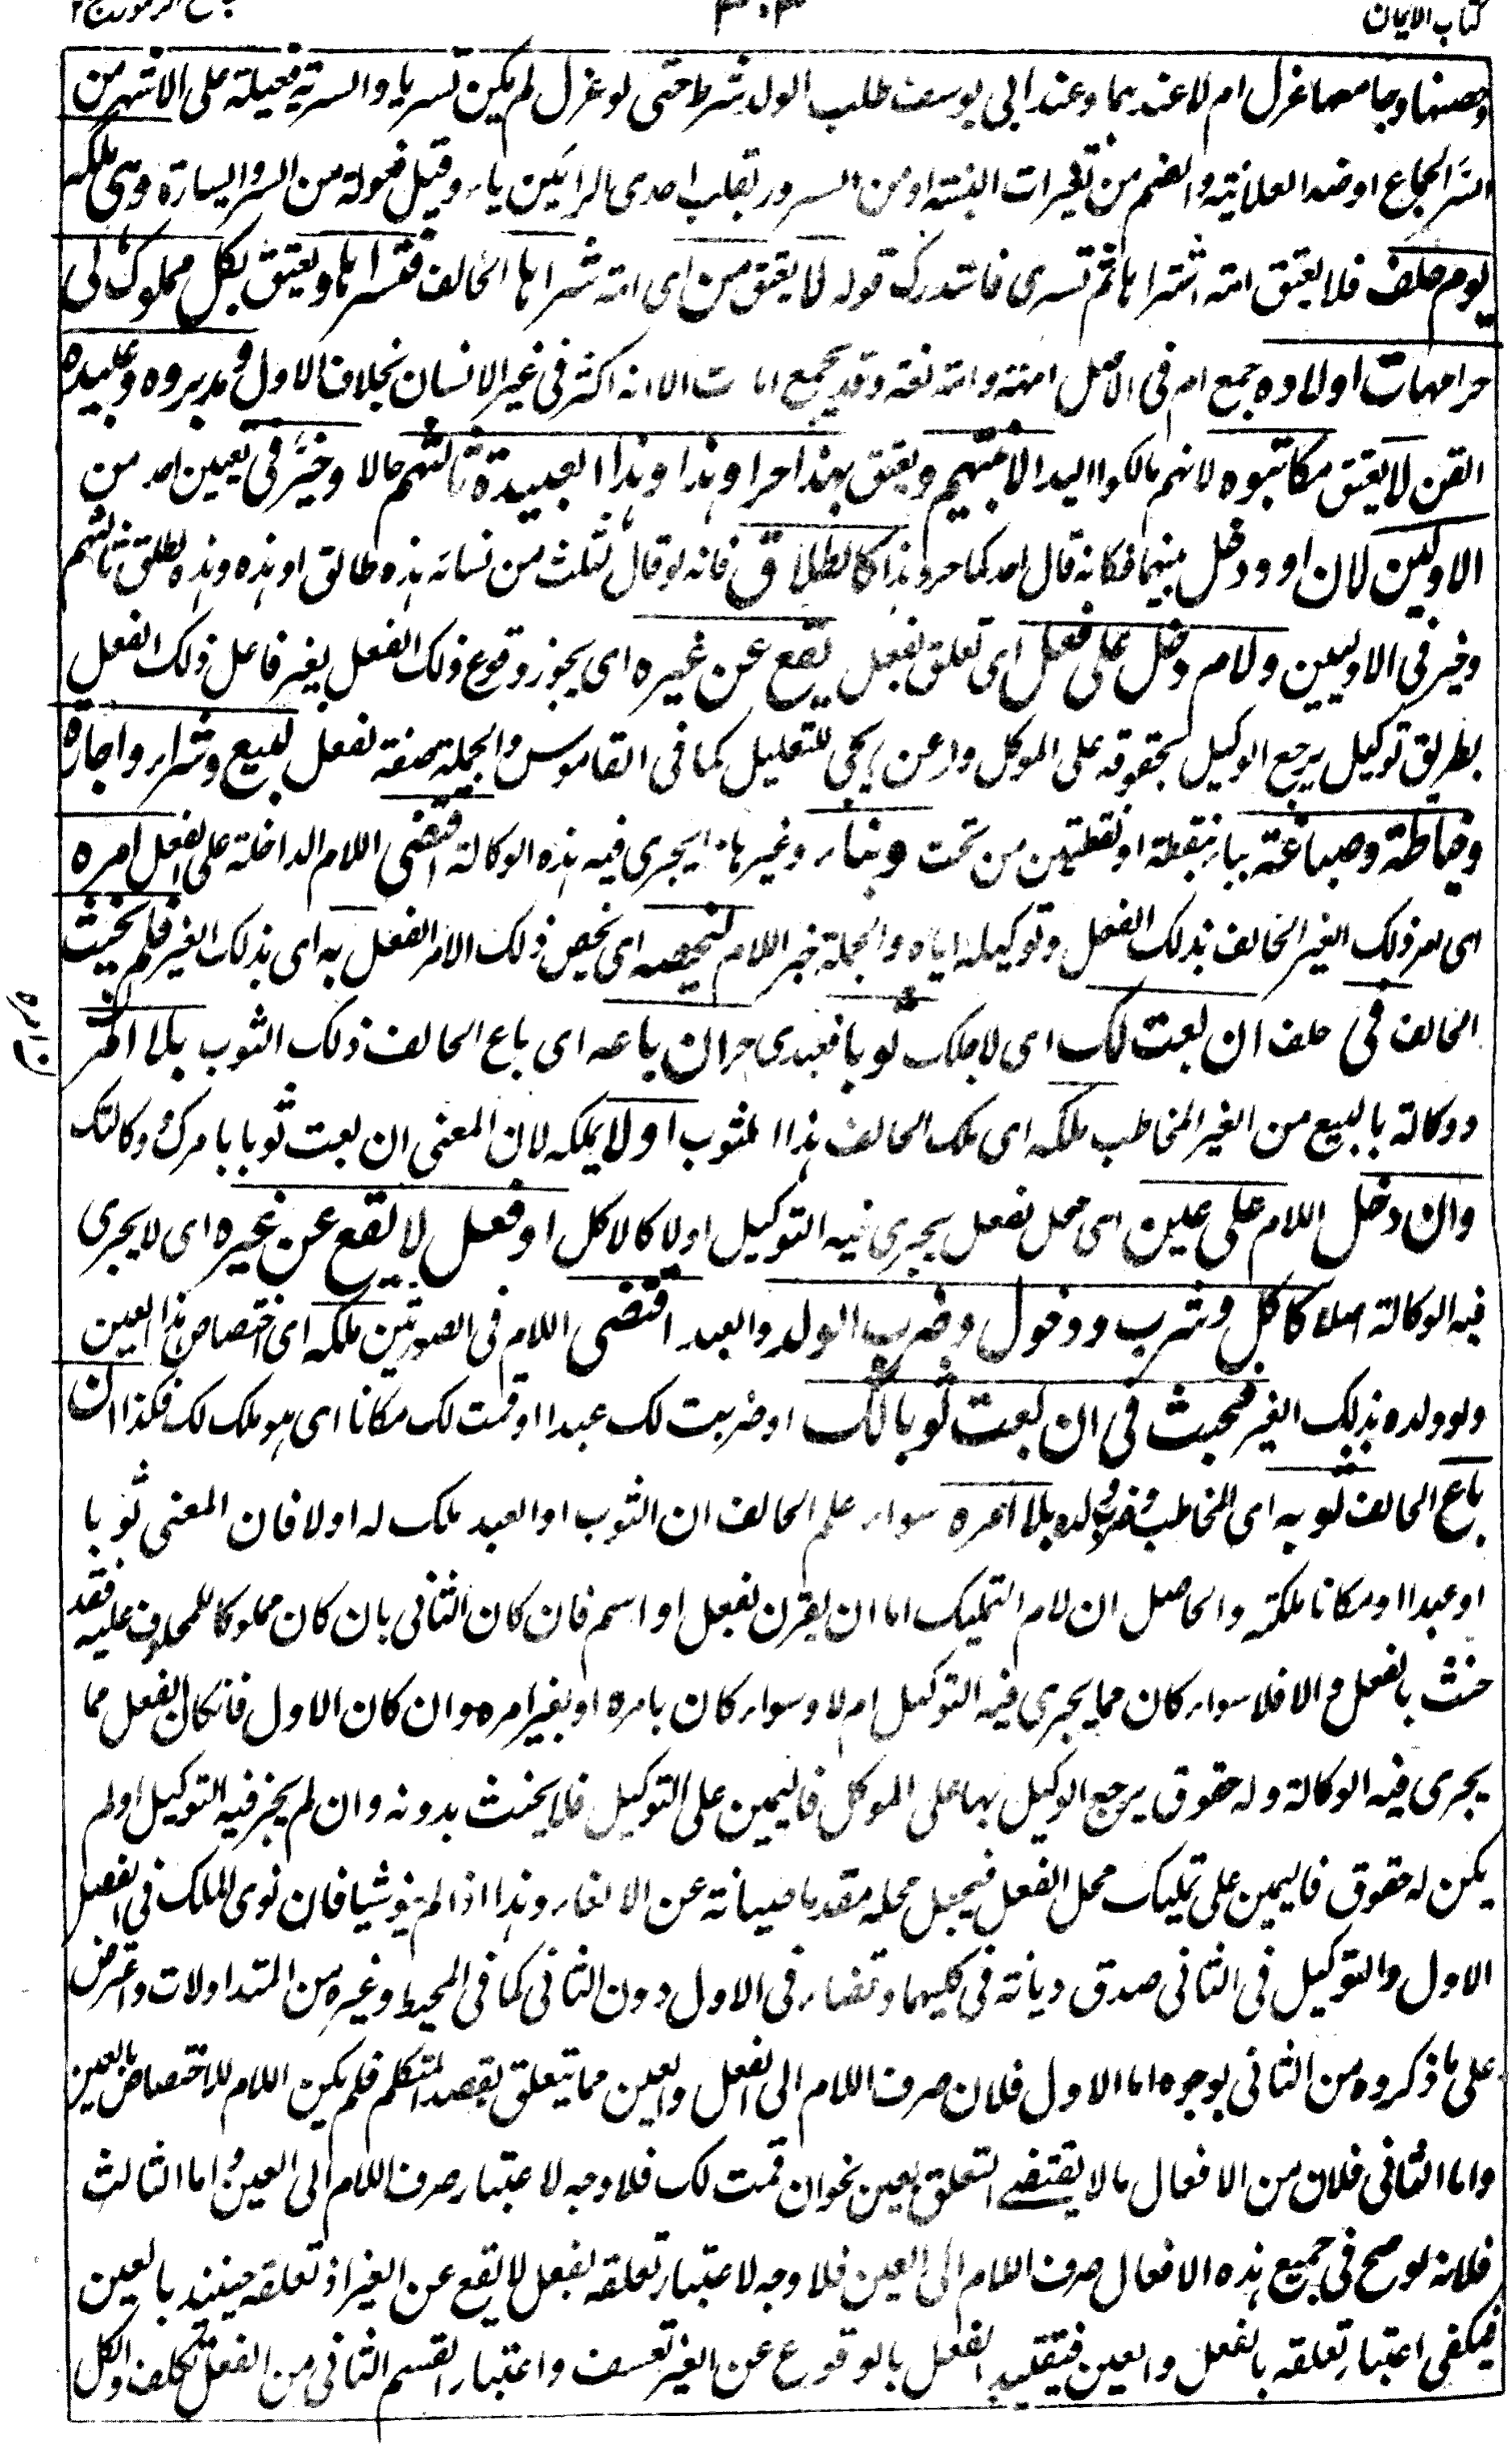 كتاب الايمان ٣٠٣ جامع الرموز ج٢
وحصنها وجامعها عزل ام لا عندهما وعند ابي يوسف طلب الولد شرط حتى لو عزل لم يكن تسريا والسرية فعيلة على الاشهر من
السر الجماع او ضد العلانية والضم من تغيرات النسبة او من السرور بقلب احدى الرائين ياء وقيل فعولة من السرو السيارة وهي ملكه
يوم حلف فلا يعتق امته اشتراها ثم تسرى فاستدرك قوله لا يعتق من اى امة شراها الحالف فتسراها ويعتق بكل مملوك لى
حر امهات اولاده جمع ام فى الاصل امهة و امته لغة وقد يجمع امات الا انه اكثر فى غير الانسان بخلاف الاول و مدبروه وعبيده
القن لا يعتق مكاتبوه لانهم مالكوا اليد الا بنيتهم ويعتق بهذا حر او هذا وهذا لعبيده ثالثهم حالا وخير فى تعيين احد من
الاولين لان او ودخل بينهما فكانه قال احدكما حر وهذا كالطلاق فانه لو قال لثلث من نسائه هذه طالق او هذه وهذه يطلق ثالثهم
وخير فى الاوليين ولام دخل على فعل اى تعلق بفعل يقع عن غيره اى يجوز وقوع ذلك الفعل بغير فاعل ذلك الفعل
بطريق توكيل يرجع الوكيل بحقوقه على الموكل واو عن يجى للتعليل كما فى القاموس والجملة صفة لفعل كبيع وشراء واجارة
وخياطة وصباغة بباء بنقطة او نقطتين من تحت وبناء وغيرها ما يجرى فيه هذه الوكالة اقتضى اللام الداخلة على الفعل امره
اى امر ذلك الغير الحالف بذلك الفعل وتوكيله اياه والجملة خبر اللام ليخصه اى يخص ذلك الامر الفعل به اى بذلك الغير فلم يحنث
الحالف فى حلف ان بعت لك اى لاجلك ثوبا فعبدى حر ان باعه اى باع الحالف ذلك الثوب بلا امر
ووكالة بالبيع من الغير المخاطب ملكه اى ملك الحالف هذا الثوب او لا يملكه لان المعنى ان بعت ثوبا بامرك ووكالتك
وان دخل اللام على عين اى محل لفعل يجرى فيه التوكيل اولا كالاكل او فعل لا يقع عن غيره اى لا يجرى
فيه الوكالة اصلا كاكل وشرب ودخول وضرب الولد والعبد اقتضى اللام فى الصورتين ملكه اى اختصاص هذا العين
ولو ولده بذلك الغير فحنث فى ان بعت ثوبا لك او ضربت لك عبدا او قمت لك مكانا اى هو ملك لك فكذا ان
باع الحالف ثوبه اى المخاطب وضرب ولده بلا امره سواء علم الحالف ان الثوب او العبد ملك له اولا فان المعنى ثوبا
او عبدا او مكانا ملكته والحاصل ان لام التمليك اما ان يقرن بفعل او اسم فان كان الثانى بان كان مملوكا للمحلوف عليه فقد
حنث بالفعل والا فلا سواء كان مما يجرى فيه التوكيل ام لا وسواء كان بامره او بغير امره وان كان الاول فان كان الفعل مما
يجرى فيه الوكالة وله حقوق يرجع الوكيل بها على الموكل فاليمين على التوكيل فلا يحنث بدونه وان لم يجز فيه التوكيل او لم
يكن له حقوق فاليمين على تمليك محل الفعل فيجعل محله مقدما صيانة عن الالغاء وهذا اذا لم ينو شيا فان نوى الملك فى الفصل
الاول والتوكيل فى الثانى صدق ديانة فى كليهما وقضاء فى الاول دون الثانى كما فى المحيط وغيره من المتداولات واعترض
على ما ذكروه من الثانى بوجوه اما الاول فلان صرف اللام الى الفعل والعين مما يتعلق بقصد المتكلم فلم يكن اللام للاختصاص بالعين
واما الثانى فلان من الافعال ما لا يقتضى التعلق بعين نحو ان قمت لك فلا وجه لاعتبار صرف اللام الى العين واما الثالث
فلانه لو صح فى جميع هذه الافعال صرف اللام الى العين فلا وجه لاعتبار تعلقه بفعل لا يقع عن الغير اذ تعلقه حينئذ بالعين
فيكفى اعتبار تعلقه بالفعل والعين فيتقيد الفعل بالوقوع عن الغير تعسف واعتبار القسم الثانى من الفعل تكلف والكل